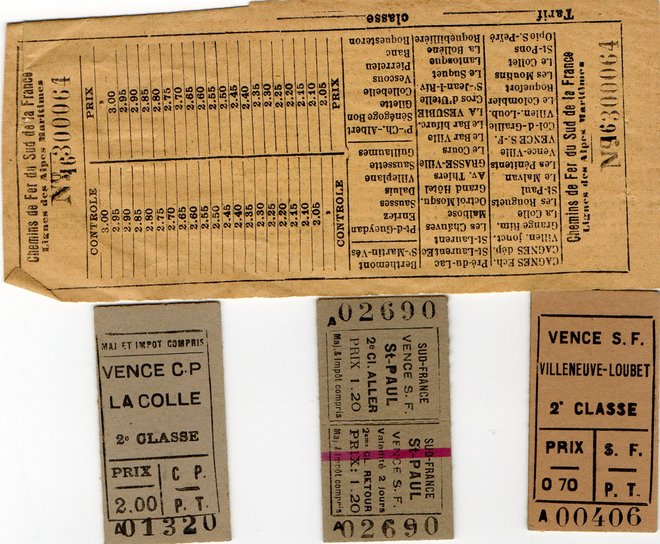 Chemins de Fer du Sud de la France
Lignes des Alpes Maritimes
Nº 46300064
PRIX
3.00
2.95
2.90
2.85
2.80
2.75
2.70
2.65
2.60
2.55
2.50
2.45
2.40
2.35
2.30
2.25
2.20
2.15
2.10
2.05
PRIX
CONTROLE
3.00
2.95
2.90
2.85
2.80
2.75
2.70
2.65
2.60
2.55
2.50
2.45
2.40
2.35
2.30
2.25
2.20
2.15
2.10
2.05
CONTROLE
Tarif
classe
Roquesteron
Banc
Pierrefeu
Vescous
Colbebelle
Gilette
Sénégogo Bon
Pt-Ch.-Albert
Guillaumes
Saussette
Villeplane
Daluis
Sausses
Enriez
Pt-d-Gueydan
St-Martin-Vés
Berthemont
Roquebillière
La Bolène
Lantosque
Le Suquet
St-Jean-l-Riv
Cros d'Utelle
LA VESUBIE
Le Bar bifurc.
Le Bar Ville
Le Tours
GRASSE-Ville
Av. Thiers
Grand Hôtel
Octroi Mosqu.
Malbosc
Les Chauves
St-Laurent
St-Laurent Ec
Pré-du-Lac
Opio S.-Peiré
St-Pons
Le Collet
Les Moulins
Roquefort
Le Colombier
Villen.-Loub.
Col-Graille
VENCE S.-F.
Vence-Ville
Les Pénitents
Le Malvan
St-Paul
Les Rouguets
La Colle
Grange Rim.
Villen. jonct.
CAGNES dép.
CAGNES Ech.
Chemins de Fer du Sud de la France
Lignes des Alpes Maritimes
Nº 46300064
MAJ ET IMPOT COMPRIS
VENCE C.P
LA COLLE
2e CLASSE
PRIX C P.
2.00 P. T.
A 01320
A 02690
SUD-FRANCE
VENCE S. F.
St-PAUL
2e Cl. ALLER
PRIX 1.20
Maj. & Impôt compris
SUD-FRANCE
St-PAUL
VENCE S. F.
Valadité 2 jours
2eme CL RETOUR
PRIX: 1.20
Maj. & Impôt compris
A 02690
VENCE S. F.
VILLENEUVE-LOUBET
2e CLASSE
PRIX S. F.
0 70 P. T.
A 00406